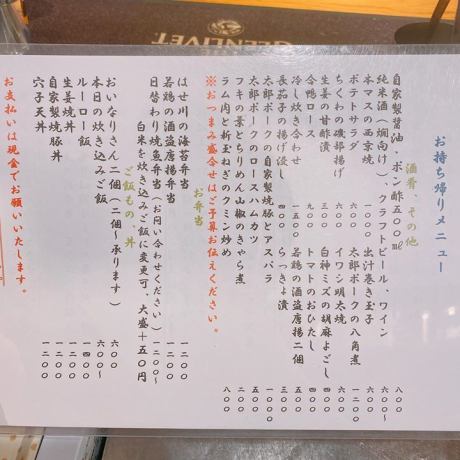 GLENLIVET
お持ち帰りメニュー
酒肴、その他
自家製醤油・ポン酢５００㎖ 八〇〇
純米酒（燗向け）、クラフトビール、ワイン
本マスの西京焼 六〇〇 出汁巻き玉子 六〇〇
ポテトサラダ 太郎ポークの八角煮
ちくわの磯部揚げ イワシ明太焼
生姜の甘酢漬 白神ミズの胡麻よごし
合鴨ロース 九〇〇 トマトのおひたし
冷し炊き合わせ 若鶏の酒盗唐揚二個
長茄子の揚げ浸し 四〇〇 らっきょ漬
太郎ポークの自家製焼豚とアスパラ
太郎ポークのロースハムカツ
フキの葉とちりめん山椒のきゃら煮
ラム肉と新玉ねぎのクミン炒め 八〇〇
※おつまみ盛合せはご予算お伝えください。
お弁当
はせ川の海苔弁当 一二〇〇
若鶏の酒盗唐揚弁当
日替わり焼魚弁当（お問い合わせください）一二〇〇〜
白米を炊き込みご飯に変更可、大盛＋五〇円
ご飯もの、丼
おいなりさん二個（二個〜承ります） 六〇〇
本日の炊き込みご飯 六〇〇〜
ルーロー飯 一四〇〇
生姜焼丼 一二〇〇
自家製焼豚丼 一二〇〇
穴子天丼 一二〇〇
お支払いは現金でお願いいたします。